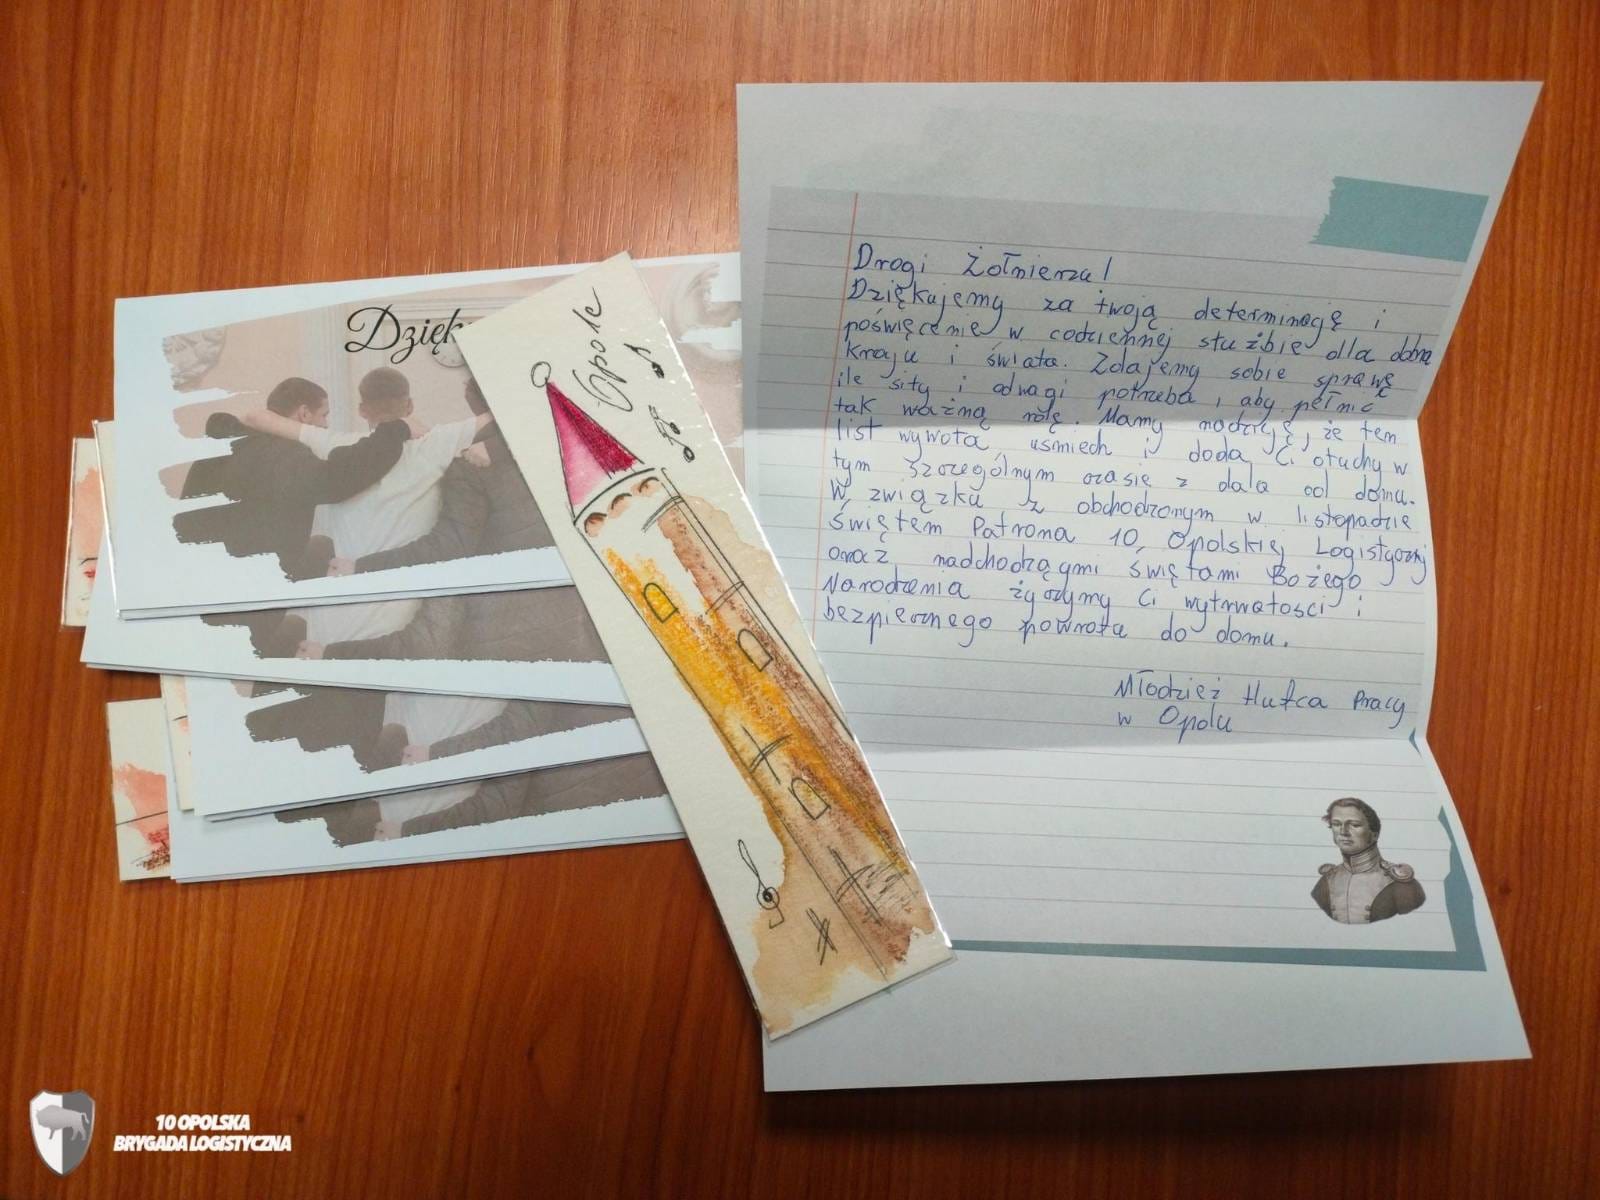 Dzięk
Opole
Drogi Żołnierzu!
Dziękujemy za twoją determinację i
poświęcenie w codziennej służbie dla dobra
kraju i świata. Zdajemy sobie sprawę
ile siły i odwagi potrzeba, aby pełnić
tak ważną rolę. Mamy nadzieję, że ten
list wywoła uśmiech i doda Ci otuchy w
tym szczególnym czasie z dala od domu.
W związku z obchodzonym w listopadzie
Świętem Patrona 10 Opolskiej Logistycznej
oraz nadchodzącymi świętami Bożego
Narodzenia życzymy Ci wytrwałości i
bezpiecznego powrotu do domu.
Młodzież Hufca Pracy
w Opolu
10 OPOLSKA
BRYGADA LOGISTYCZNA